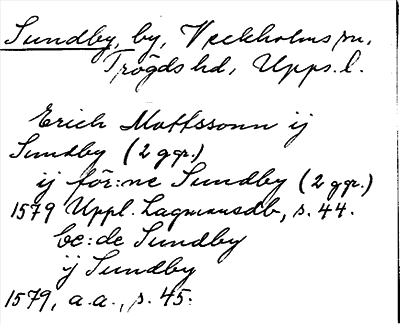 Sundby, by, Veckholms sn,
Trögds hd, Upps. l.
Erich Mattssonn ij
Sundby (2 ggr.)
ij för:ne Sundby (2 ggr.)
1579 Uppl. Lagmansdb, s. 44.
be:de Sundby
ij Sundby
1579, a.a., s. 45.